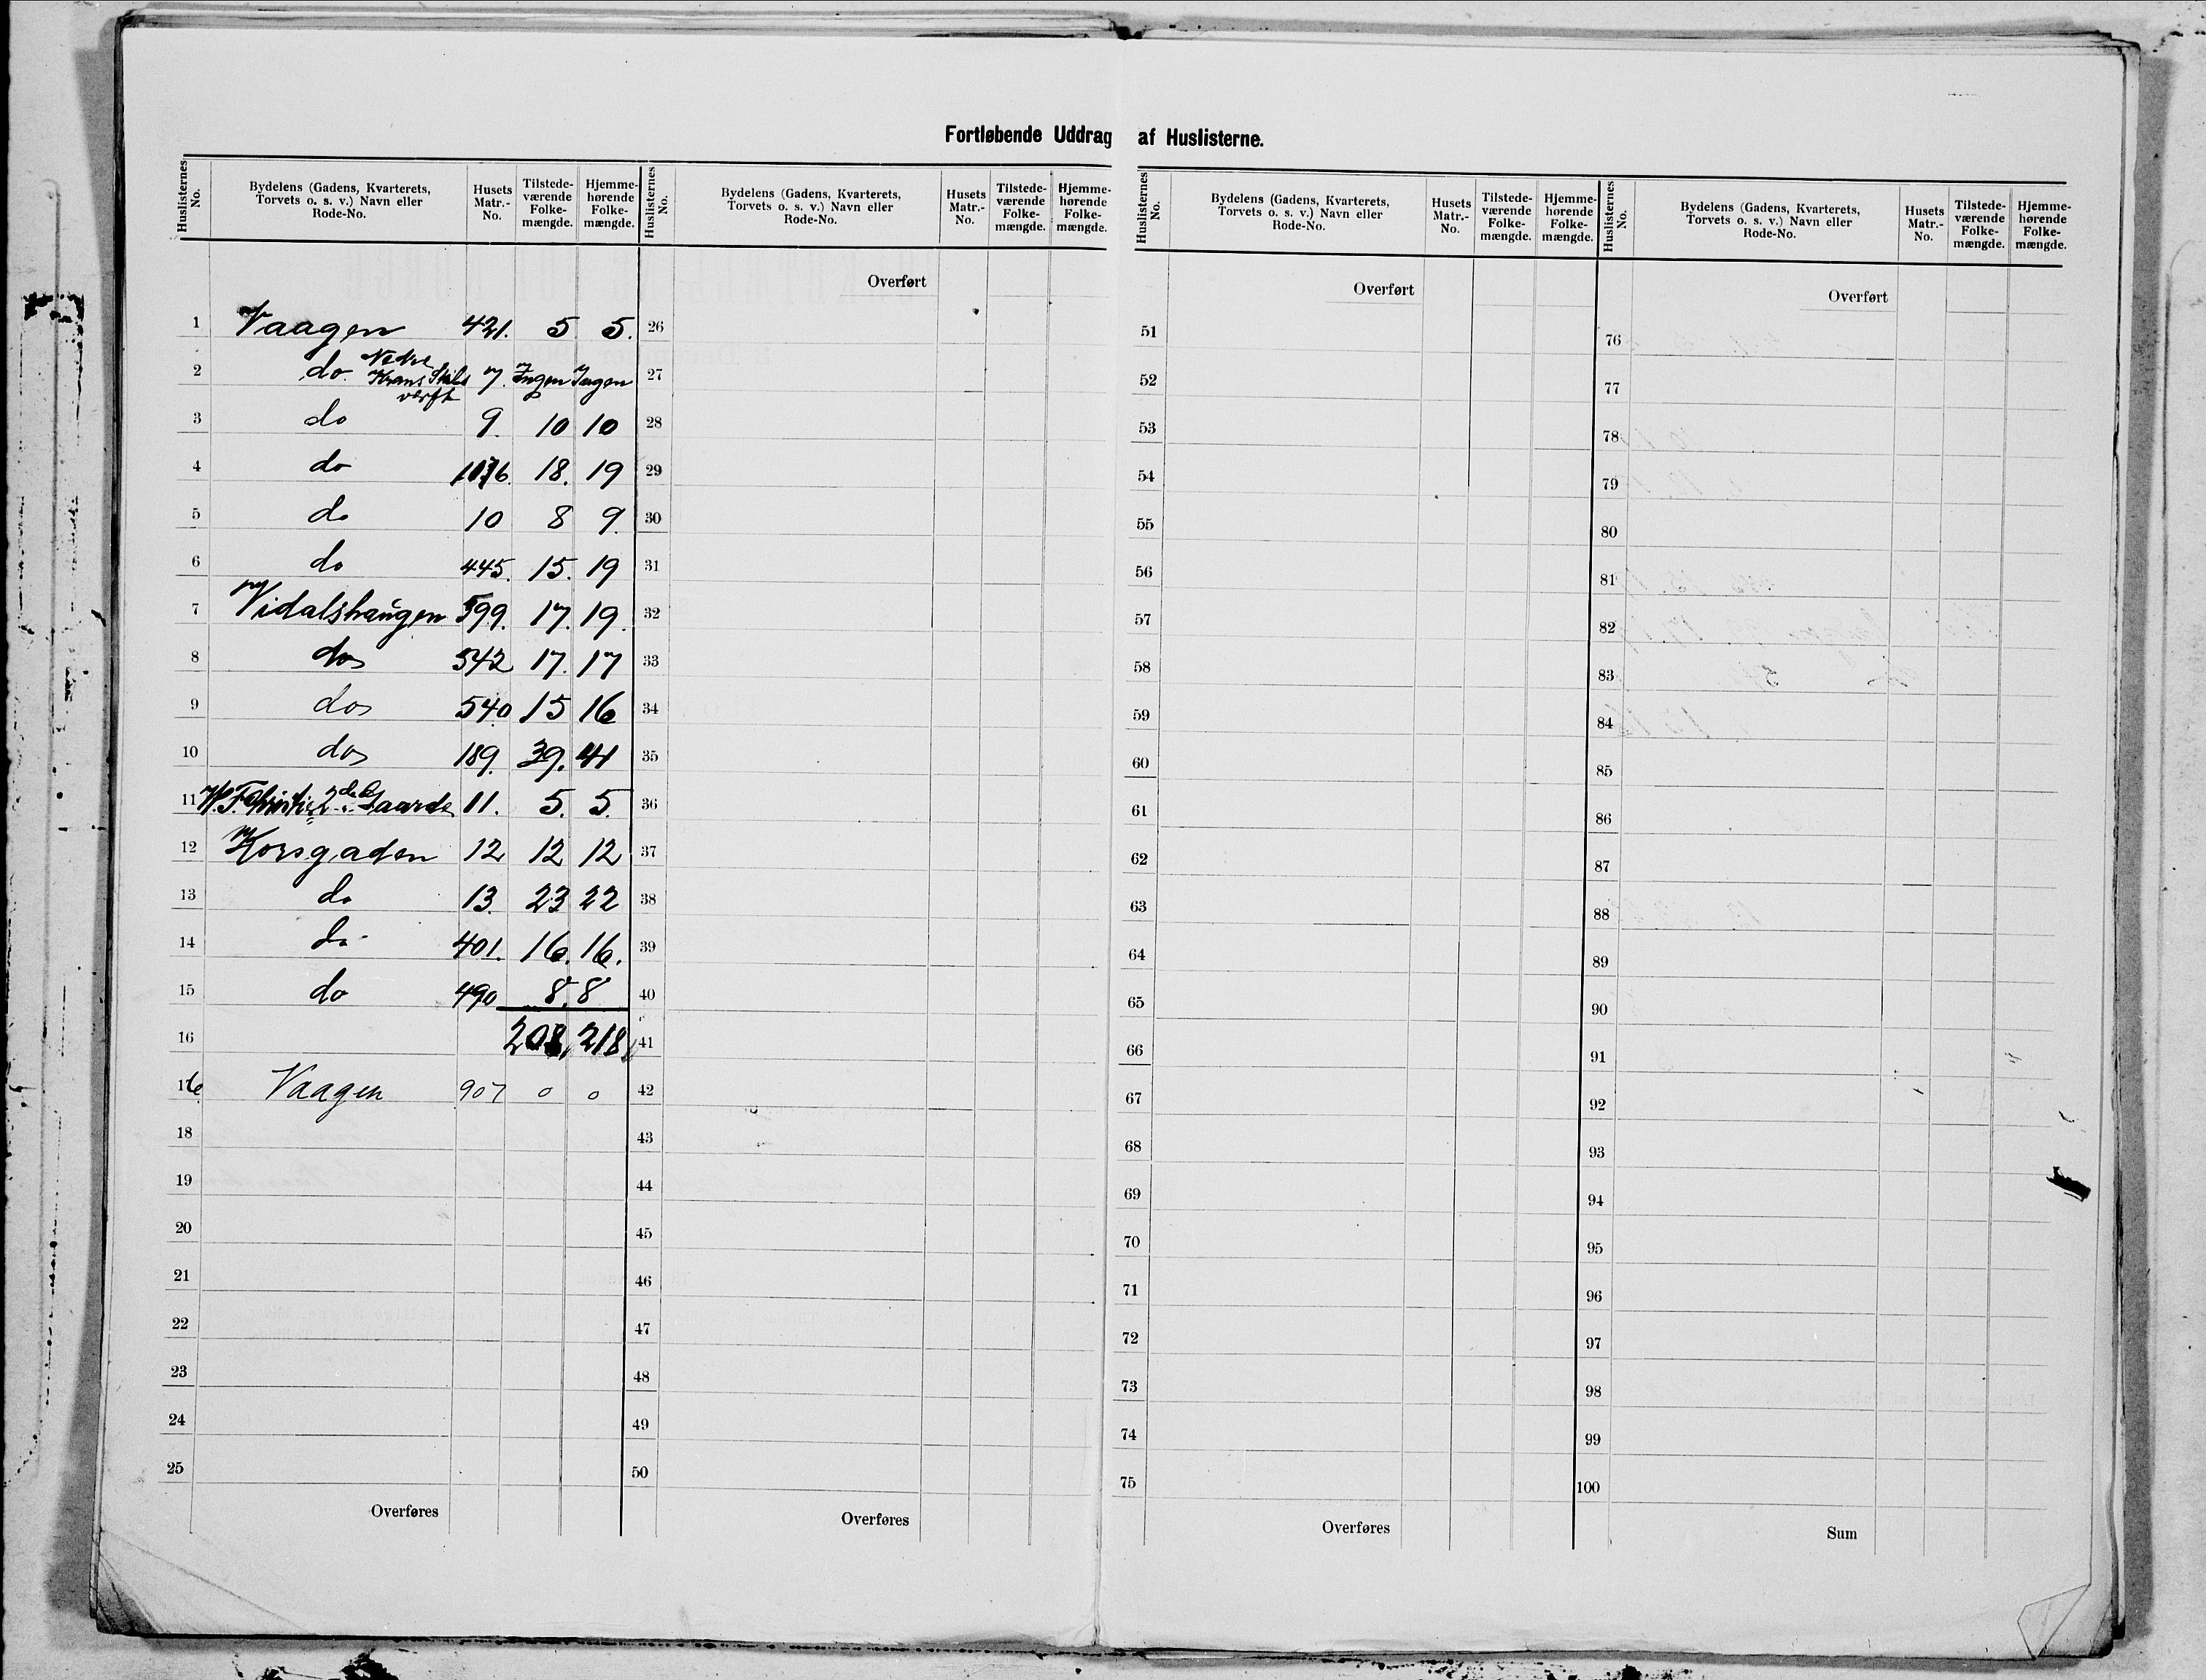 Fortløbende Uddrag af Huslisterne.
Huslisternes No. Bydelens (Gadens, Kvarterets, Torvets o. s. v.) Navn eller Rode-No. Husets Matr.-No. Tilstedeværende Folkemængde. Hjemmehørende Folkemængde.
1 Vaagen 421. 5 5.
2 do. Nedre Krans Skibsværft 7. Ingen Ingen
3 do 9. 10 10
4 do 18. 19
5 do 10 8 9.
6 do 445. 15. 19
7 Vidalshaugen 599. 17. 19.
8 do 542 17. 17
9 do 540 15 16
10 do 189. 39. 41
11 W. F. Christies 2de Gaarde 11. 5. 5.
12 Korsgaden 12 12 12
13 do 13. 23 22
14 do 401. 16. 16.
15 do 490 8. 8
16 208, 218,
16 Vaagen 907 0 0
18
19
20
21
22
23
24
25
Overføres
Huslisternes No. Bydelens (Gadens, Kvarterets, Torvets o. s. v.) Navn eller Rode-No. Husets Matr.-No. Tilstedeværende Folkemængde. Hjemmehørende Folkemængde.
Overført
26
27
28
29
30
31
32
33
34
35
36
37
38
39
40
41
42
43
44
45
46
47
48
49
50
Overføres
Huslisternes No. Bydelens (Gadens, Kvarterets, Torvets o. s. v.) Navn eller Rode-No. Husets Matr.-No. Tilstedeværende Folkemængde. Hjemmehørende Folkemængde.
Overført
51
52
53
54
55
56
57
58
59
60
61
62
63
64
65
66
67
68
69
70
71
72
73
74
75
Overføres
Huslisternes No. Bydelens (Gadens, Kvarterets, Torvets o. s. v.) Navn eller Rode-No. Husets Matr.-No. Tilstedeværende Folkemængde. Hjemmehørende Folkemængde.
Overført
76
77
78
79
80
81
82
83
84
85
86
87
88
89
90
91
92
93
94
95
96
97
98
99
100
Sum